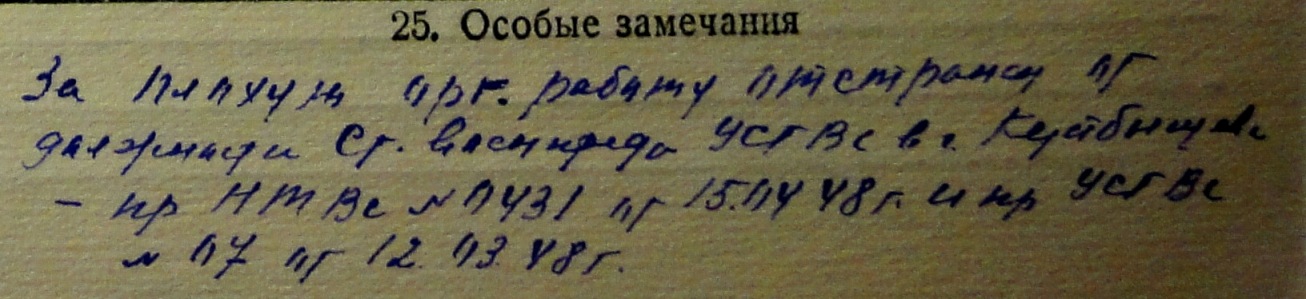 25. Особые замечания
За плохую орг. работу отстранен от
должности Ст. военпреда УСГВс в г. Куйбышеве
- пр НТ Вс № 0431 от 15.04 48 г. и пр УСГВс
№ 07 от 12.03.48 г.